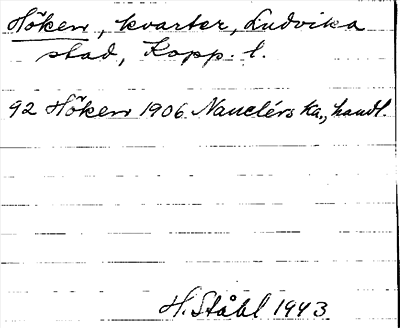 Höken, kvarter, Ludvika
stad, Kopp. l.
92 Höken 1906 Nauclérs ka., handl.
H. Ståhl 1943